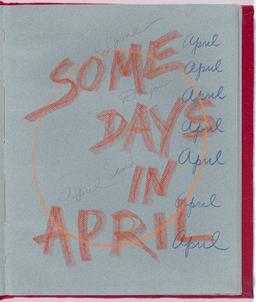 Some
SOME
Days
DAYS
April in
IN
APRIL
April
April
April
April
April
April
April